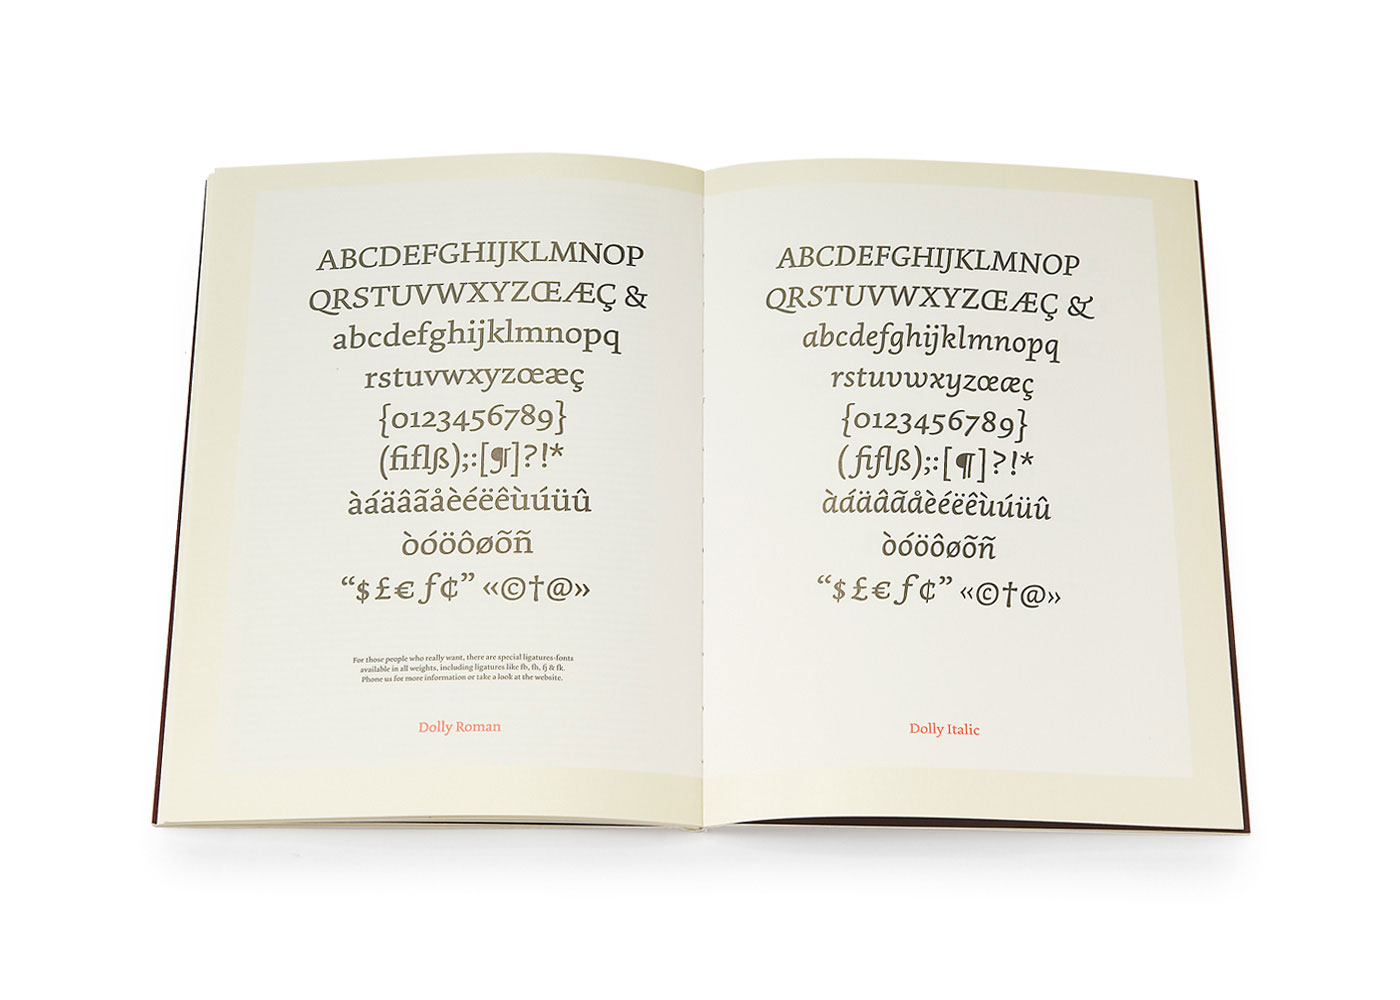 ABCDEFGHIJKLMNOP
QRSTUVWXYZŒÆÇ &
abcdefghijklmnopq
rstuvwxyzœæç
{0123456789}
(fiflß);:[¶]?!*
àáäâãåèéëêùúüû
òóöôøõñ
“$£€ƒ¢” «©†@»
For those people who really want, there are special ligatures-fonts
available in all weights, including ligatures like fb, fh, fj & fk.
Phone us for more information or take a look at the website.
Dolly Roman
ABCDEFGHIJKLMNOP
QRSTUVWXYZŒÆÇ &
abcdefghijklmnopq
rstuvwxyzœæç
{0123456789}
(fiflß);:[¶]?!*
àáäâãåèéëêùúüû
òóöôøõñ
“$£€ƒ¢” «©†@»
Dolly Italic